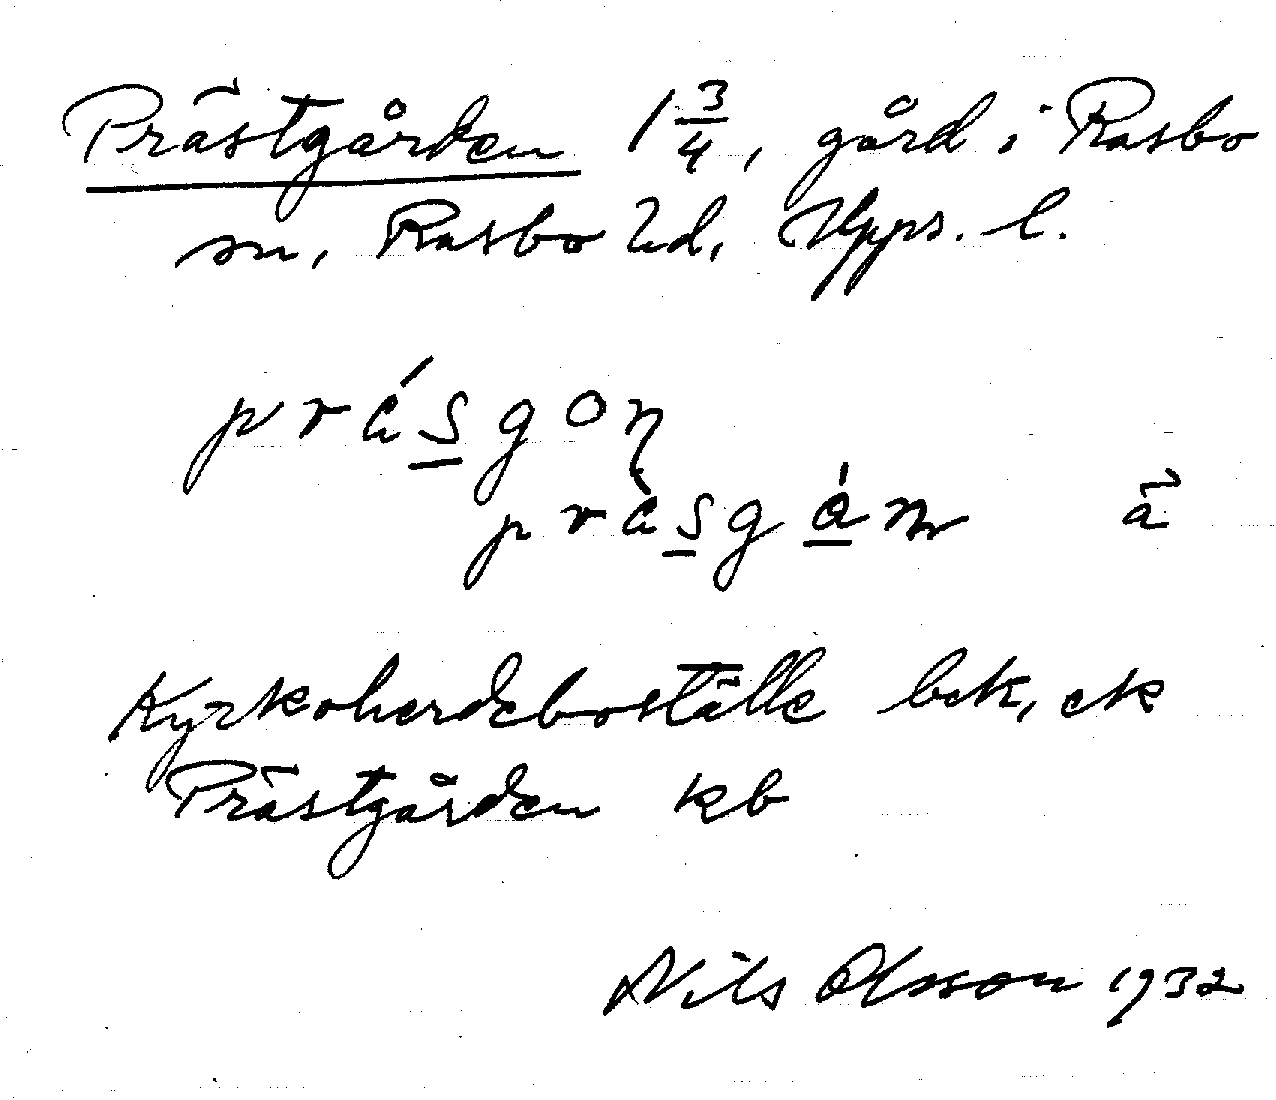 Prästgården 1 3/4, gård i Rasbo
sn, Rasbo hd, Upps. l.
prásgoņ
pràsgån ä
Kyrkoherdeboställe bek, ek
Prästgården kb
Nils Olsson 1932